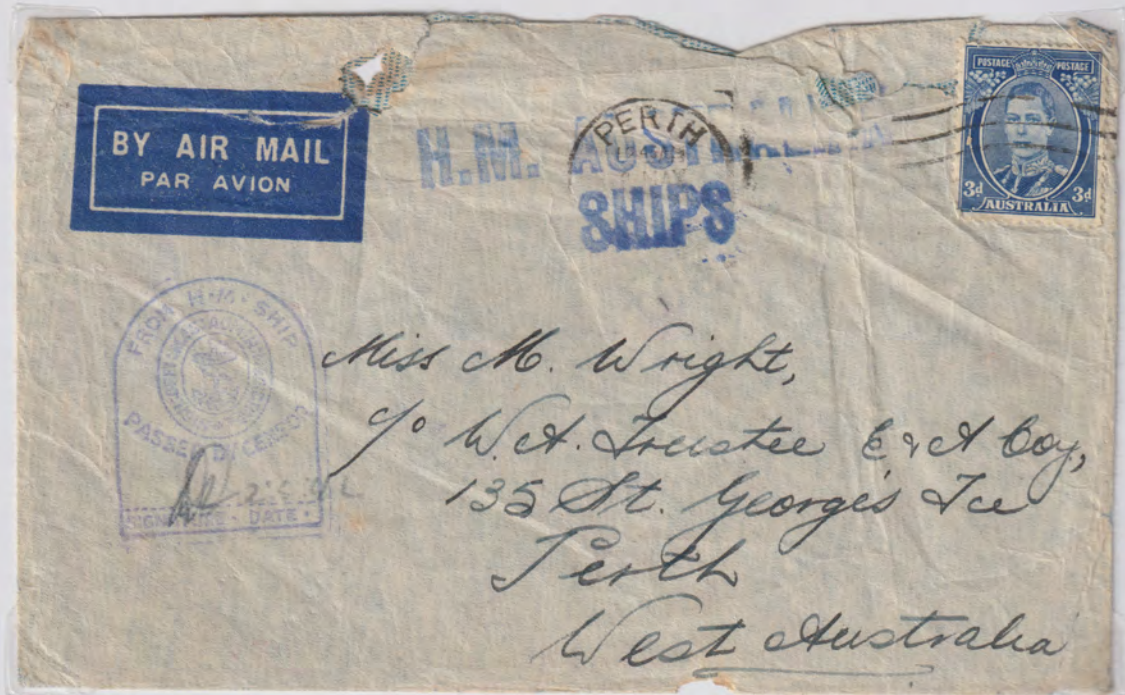 BY AIR MAIL
PAR AVION
H.M.
SHIPS
PERTH
POSTAGE POSTAGE
3d 3d
AUSTRALIA
FROM H.M. SHIP
PASSED BY CENSOR
SIGNATURE - DATE
Miss M. Wright,
c/o W.A. Trustee E & A Coy,
135 St. George's Tce
Perth
West Australia